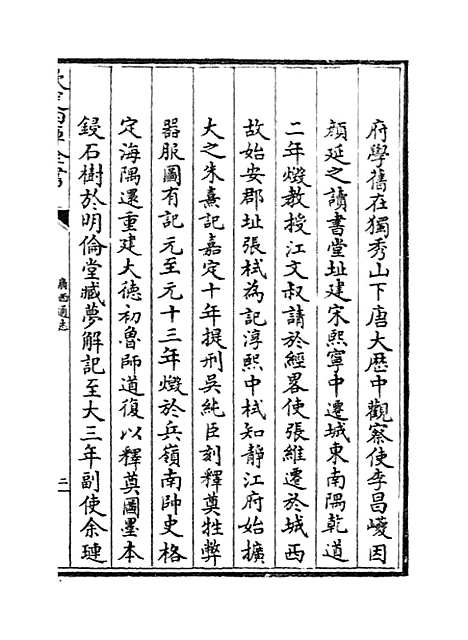 府學舊在獨秀山下唐大歴中觀察使李昌巙因
顔延之讀書堂址建宋熙寧中遷城東南隅乾道
二年燬教授江文叔請於經畧使張維遷於城西
故始安郡址張栻為記淳熙中栻知静江府始擴
大之朱熹記嘉定十年提刑吳純臣刻釋奠牲幣
器服圖有記元至元十三年燬於兵嶺南帥史格
定海隅還重建大德初魯師道復以釋奠圖墨本
鋟石樹於明倫堂臧夢解記至大三年副使余璉
欽定四庫全書
廣西通志
二